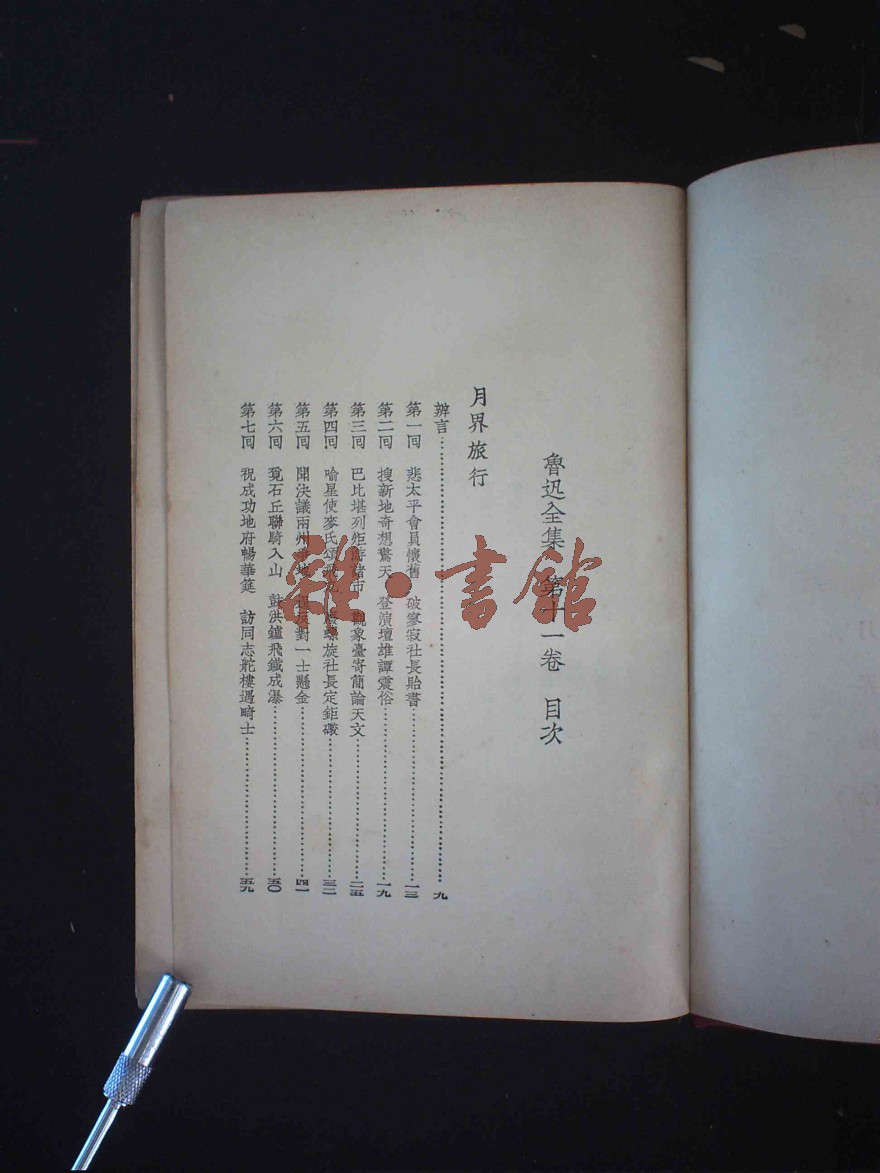 魯迅全集 第十一卷 目次
月界旅行
辨言 九
第一回 悲太平會員懷舊 破寥寂社長貽書 一三
第二回 搜新地奇想驚天 登演壇雄譚震俗 一九
第三回 巴比堪列炬游諸市 觀象臺寄簡論天文 二五
第四回 喻星使麥氏頌飛丸 廢螺旋社長定鉅礮 三二
第五回 聞決議兩州爭地 逞反對一士懸金 四一
第六回 覓石丘聯騎入山 鼓洪鑪飛鐵成瀑 五〇
第七回 祝成功地府暢華筵 訪同志舵樓遇畸士 五九
雜·書館